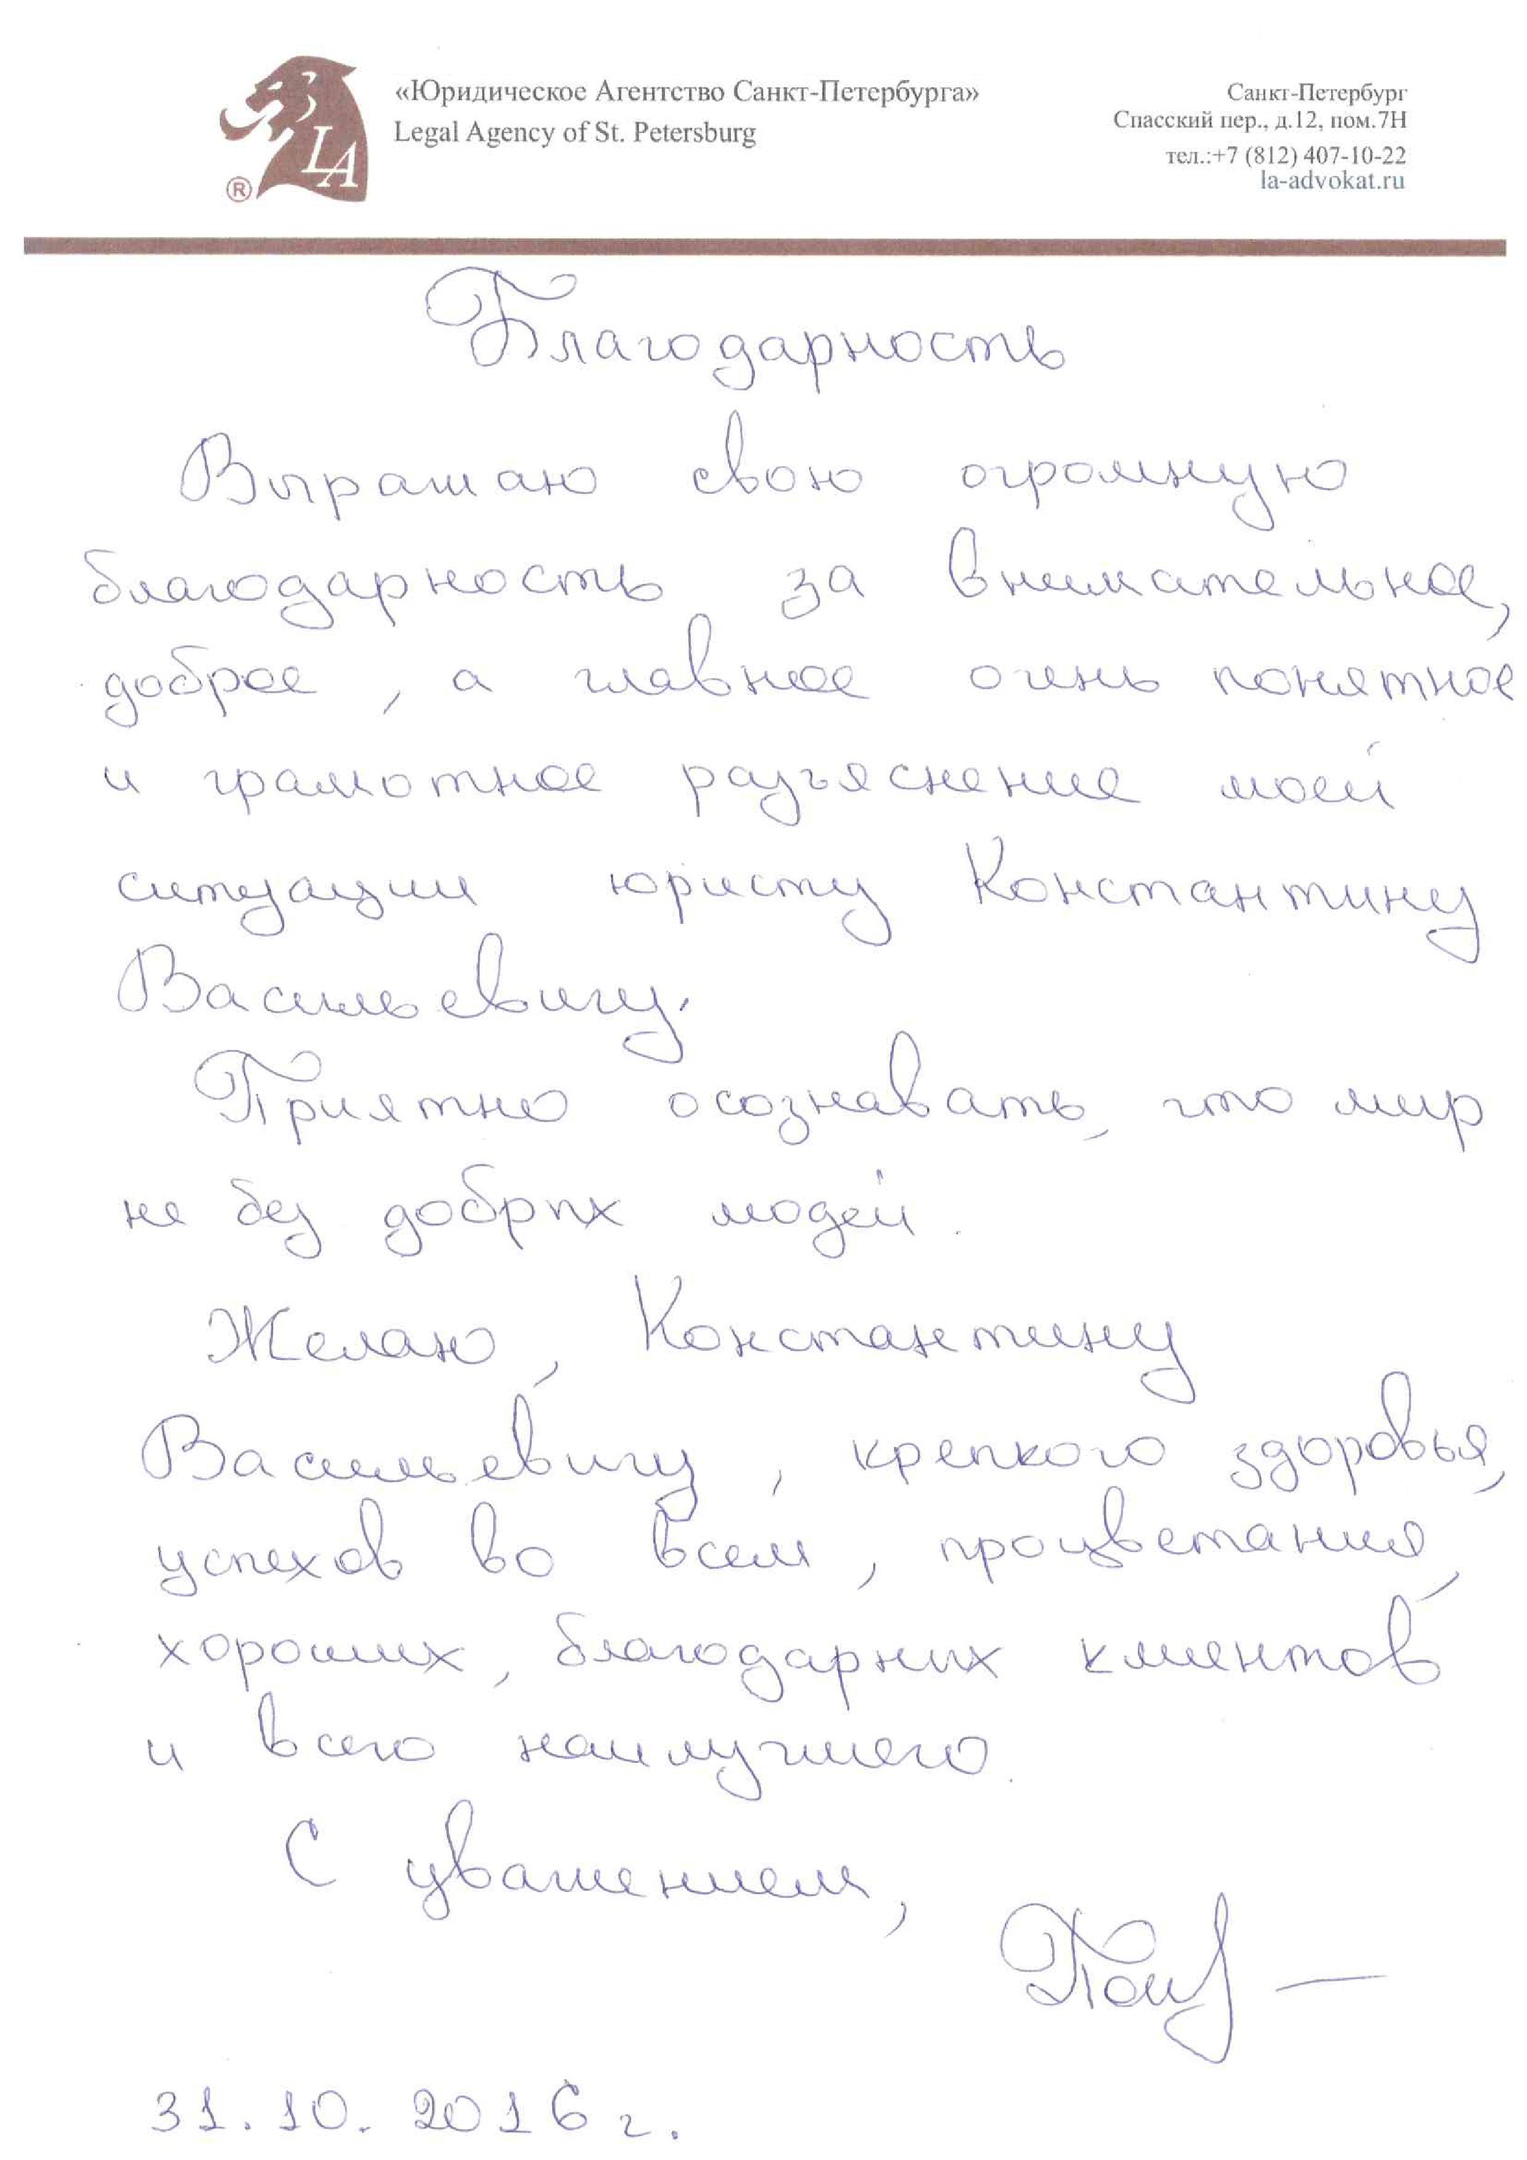 «Юридическое Агентство Санкт-Петербурга»
Legal Agency of St. Petersburg
Санкт-Петербург
Спасский пер., д.12, пом.7Н
тел.:+7 (812) 407-10-22
la-advokat.ru
LA
®
Благодарность
Выражаю свою огромную
благодарность за внимательное,
доброе, а главное очень понятное
и грамотное разъяснение моей
ситуации юристу Константину
Васильевичу.
Приятно осознавать, что мир
не без добрых людей.
Желаю, Константину
Васильевичу, крепкого здоровья,
успехов во всем, процветания,
хороших, благодарных клиентов
и всего наилучшего.
С уважением,
31.10.2016 г.